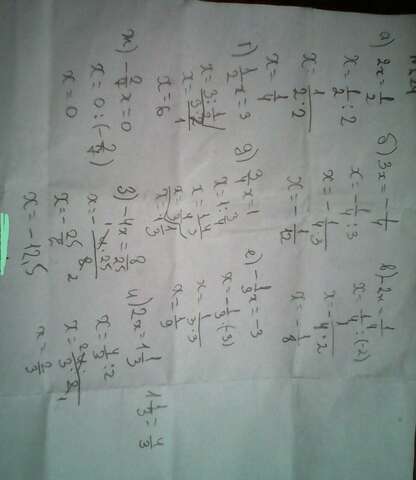 а) 2x=1/2
x=1/2:2
x=1/2·2
x=1/4
б) 3x=-1/4
x=-1/4:3
x=-1/4·3
x=-1/12
в) -2x=1/4
x=1/4:(-2)
x=-1/4·2
x=-1/8
г) 1/2x=3
x=3:1/2
x=3·2/1
x=6
д) 3/4x=1
x=1:3/4
x=1·4/3
x=1 1/3
е)
x=-1/3:(-3)
x=1/3·3
x=1/9
ж) -2/7x=0
x=0:(-2/7)
x=0
з) -4x=8/25
x=-4·25/8
x=-25/2
x=-12,5
и) 2x=1 1/3
1 1/3=4/3
x=4/3:2
x=2/3